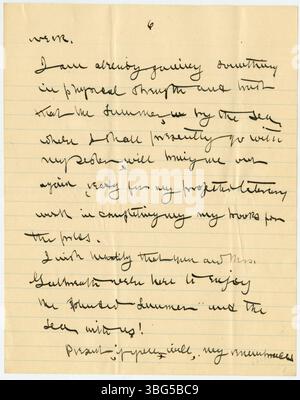 6
week.
I am already gaining something
in physical strength and trust
that the Summer, by the Sea,
where I shall presently go with
my sister, will bring me out
again ready for my projected literary
work in completing my books for
the press.
I wish heartily that you and Mrs.
Galbreath were here to enjoy
the Summer and the
Sea with us!
Present, if you will, my